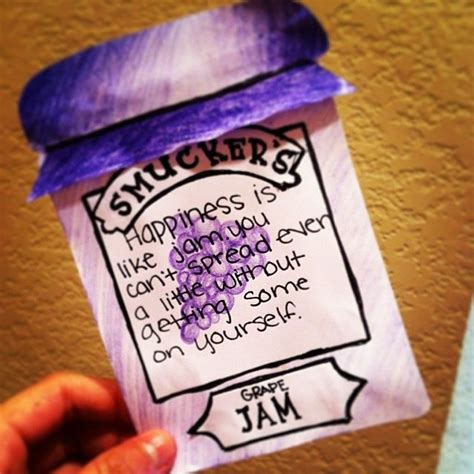 SMUCKER'S
Happiness is
like jam. you
can't spread even
a little without
getting some
on yourself.
GRAPE
JAM